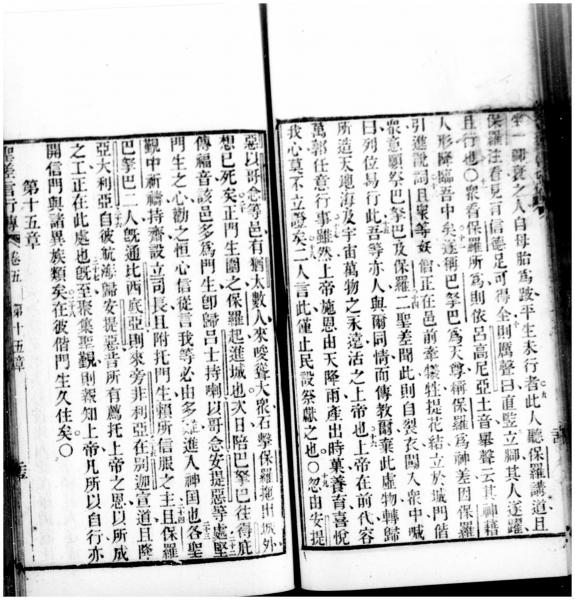 坐一歸衰之人自母胎爲跛平生未行者此人聽保羅講道且
保羅注着見言信德足可得全則厲聲曰直竪立脚其人遂躍
且行也〇衆看保羅所爲則依呂高尼亞土音舉聲云其神藉
人形降臨吾中矣遂稱巴拏巴爲天尊稱保羅爲神差因保羅
引進說詞且衆等
偕正在邑前牽犧牲提花結立於城門偕
衆意願祭巴拏巴及保羅二聖差聞此則自裂衣闖入衆中喊
曰列位易行此吾等亦人與爾同情而傳教爾棄此虛物轉歸
所造天地海及宇宙萬物之永遠活之上帝也上帝在前代容
萬郭任意行事雖然上帝施恩由天降雨產出時菓養育喜悅
我心莫不立證矣二人言此僅止民設祭獻之也〇忽由安提
惡以哥念等邑有猶太數人來唆聳大衆石擊保羅拖出城外
想已死矣正門生圍之保羅起進城也次日陪巴拏巴往得庇
傳福音該邑多爲門生卽歸呂士持喇以哥念安提惡等處堅
門生之心勸之恒心信從言我等必由多難進入神國也各聖
覲中祈禱持齋設立司長且附托門生賴所信服之主且保羅
巴拏巴二人旣通比西底亞則來旁非利亞在別迦宣道且降
亞大利亞自彼航海歸安提惡昔所有薦托上帝之恩以所成
之工正在此處也旣至聚集聖覲則報知上帝凡所以自行亦
開信門與諸異族類矣在彼偕門生久住矣〇
第十五章
聖差言行傳 卷五 第十五章